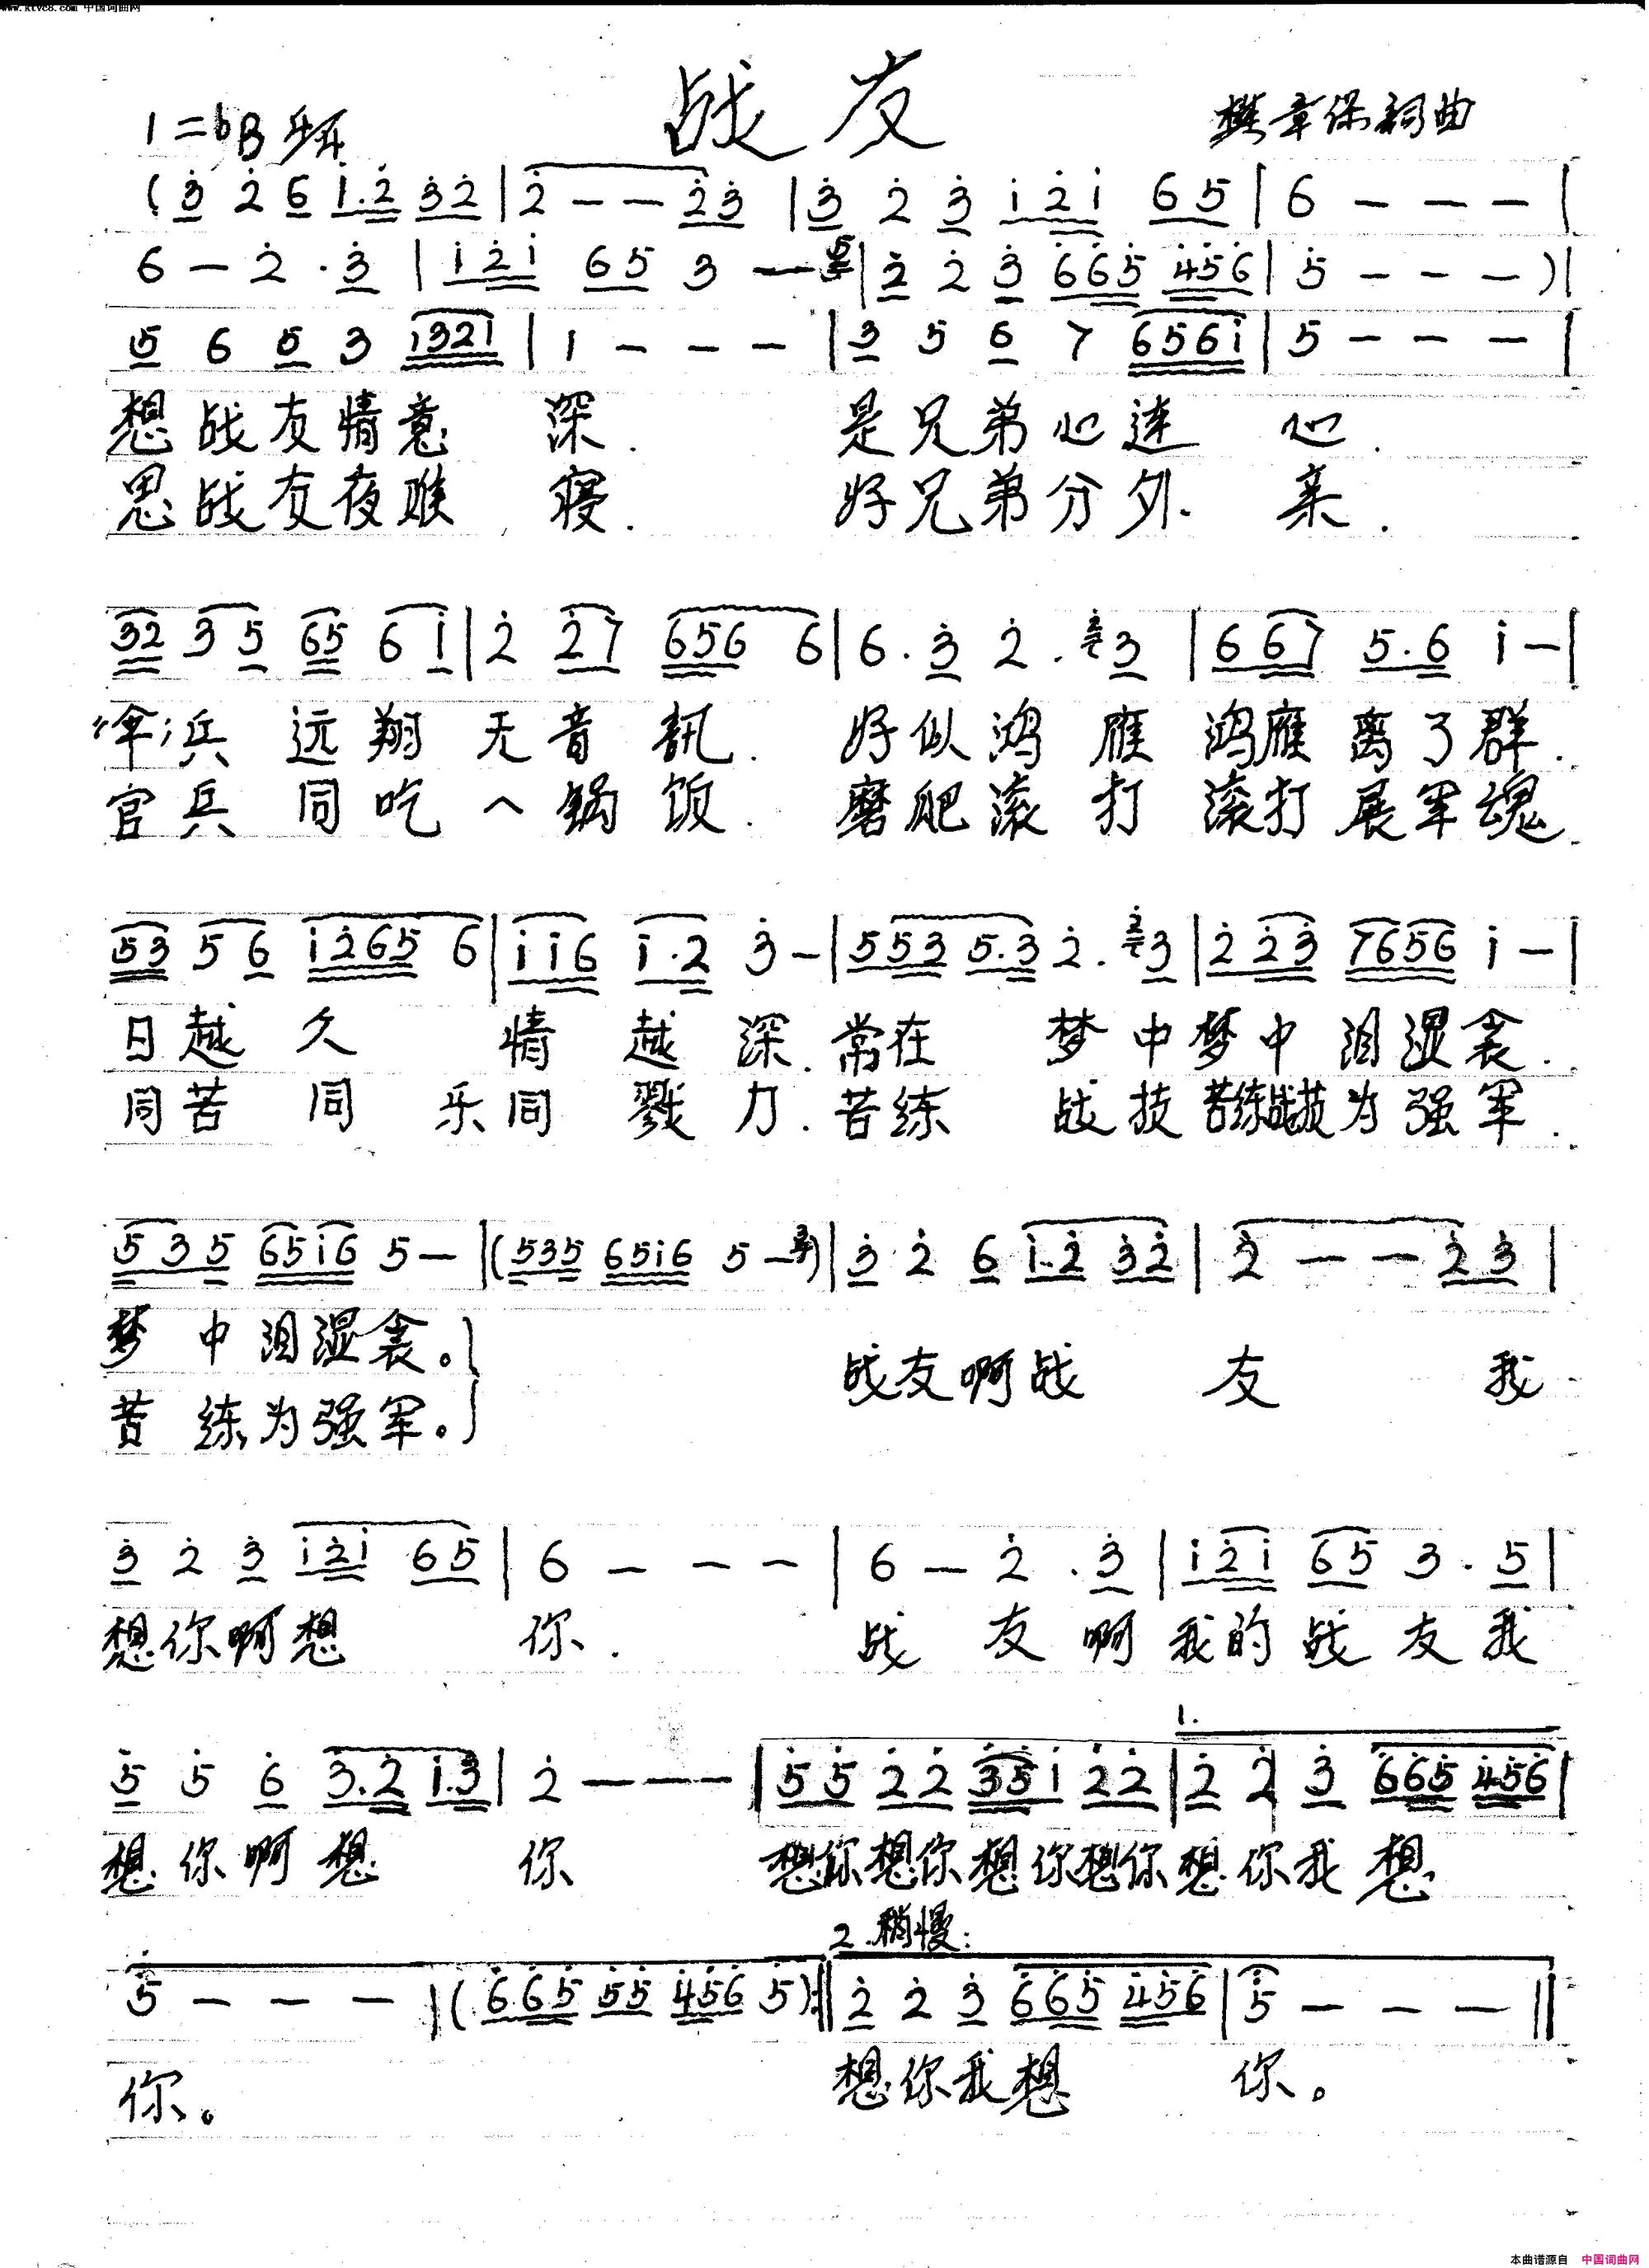 www.ktvc8.com 中国词曲网
战友
1=♭B 4/4
樊章保詞曲
(3̇ 2̇ 6 1̇.2̇ 3̇2̇ | 2̇ - - 2̇3̇ | 3̇ 2̇ 3̇ 1̇2̇1̇ 65 | 6 - - - |
6 - 2̇ . 3̇ | 1̇2̇1̇ 65 3 - | 2̇ 2̇ 3̇ 6̇6̇5̇ 4̇5̇6̇ | 5̇ - - - )|
5 6 5 3 1321 | 1 - - - | 3 5 6 7 6561̇ | 5 - - - |
想战友情意 深. 是兄弟心连 心.
思战友夜难 寝. 好兄弟分外 亲.
32 3 5 65 6 1̇ | 2̇ 2̇7 656 6 | 6 . 3̇ 2̇ . 3̇ | 667 5.6 1̇ - |
兵 远翔 无音訊. 好似鸿雁 鸿雁离了群.
官兵 同吃 一锅饭. 磨爬滚打 滚打展军魂.
53 5 6 1̇2̇65 6 | 1̇1̇6 1̇.2̇ 3̇ - | 553 5.3 2̇ . 3̇ | 2̇2̇3̇ 7656 1̇ - |
日越久 情越深. 常在 梦中梦中 泪湿衾.
同苦同乐同戮力. 苦练 战技苦练战技为强军.
5 3 5 651̇6 5 - | (535 651̇6 5 - ) | 3̇ 2̇ 6 1̇.2̇ 3̇2̇ | 2̇ - - 2̇ 3̇ |
梦中泪湿衾。
战友啊战 友 我
苦练为强军。
3̇ 2̇ 3̇ 1̇2̇1̇ 65 | 6 - - - | 6 - 2̇ . 3̇ | 1̇2̇1̇ 65 3 . 5 |
想你啊想 你. 战友啊我的战友我
1.
5̇ 5̇ 6̇ 3̇.2̇ 1̇.3̇ | 2̇ - - - | 5̇5̇ 2̇2̇ 3̇5̇1̇ 2̇2̇ | 2̇ 2̇ 3̇ 6̇6̇5̇ 4̇5̇6̇ |
想你啊想 你 想你想你想你想你想你我想
2.稍慢:
5̇ - - - | (6̇6̇5̇ 5̇5̇ 4̇5̇6̇ 5̇) :‖ 2̇ 2̇ 3̇ 6̇6̇5̇ 4̇5̇6̇ | 5̇ - - - ‖
你。 想你我想 你。
本曲谱源自 中国词曲网